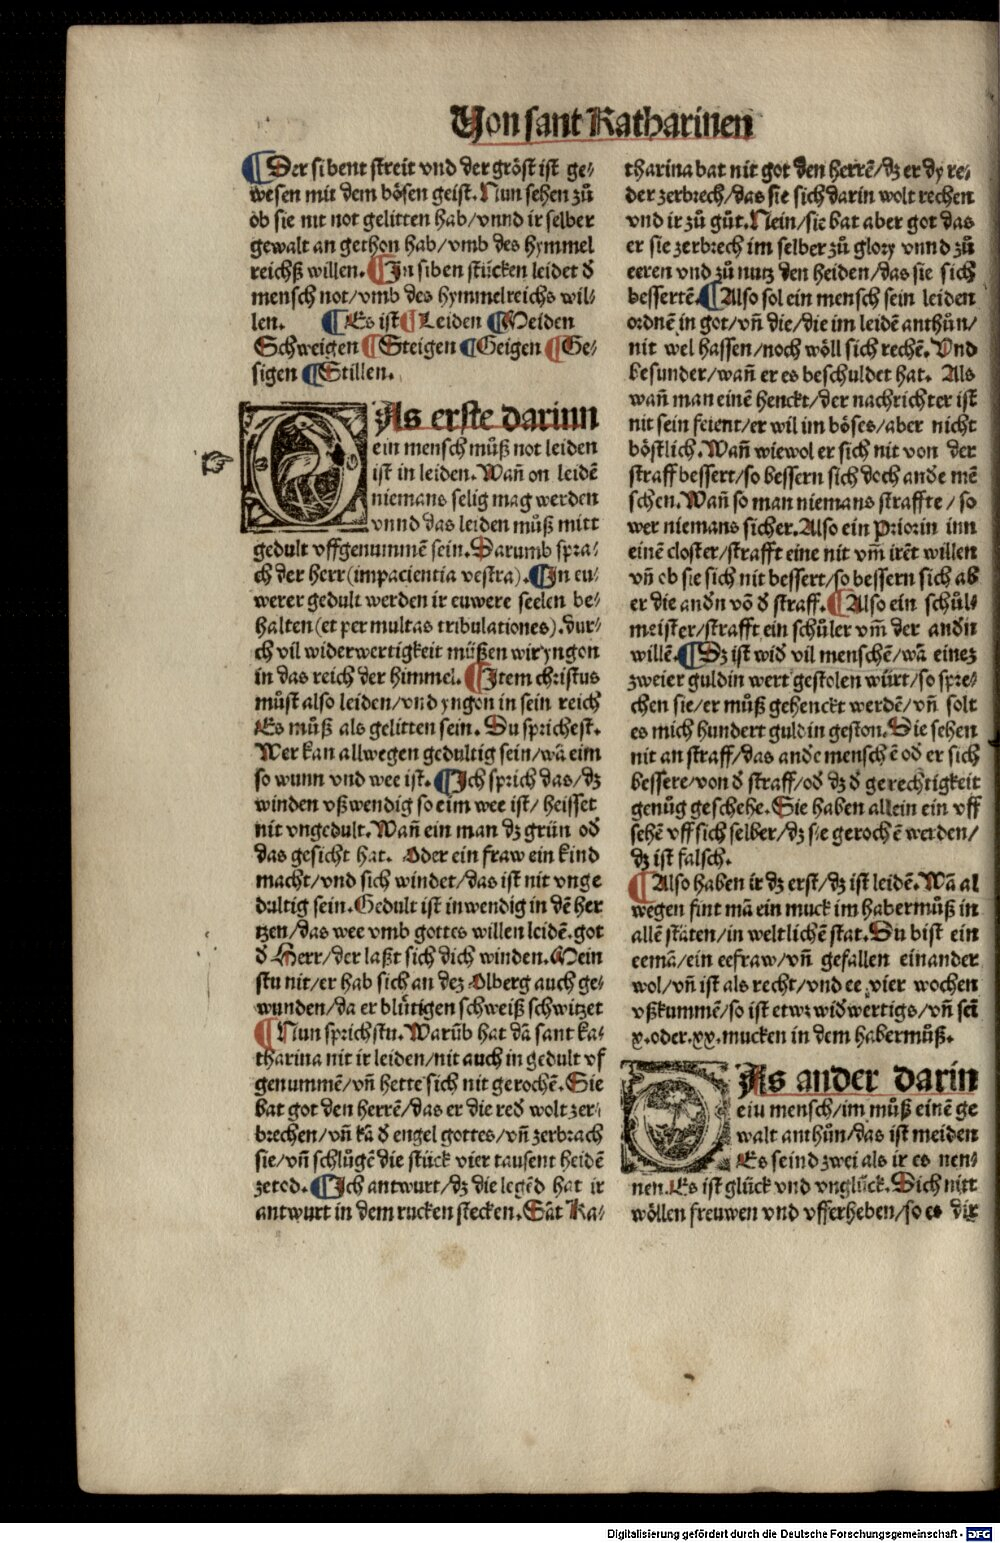 Von sant Katharinen
¶Der sibent streit vnd der gröst ist ge⸗
wesen mit dem bösen geist. Nun sehen zů
ob sie nit not gelitten hab/vnnd ir selber
gewalt an gethon hab/vmb des hymmel
reichß willen. ¶In siben stücken leidet d̄
mensch not/vmb des hymmelreichs wil⸗
len. ¶Es ist ¶Leiden ¶Meiden
Schweigen ¶Steigen ¶Geigen ¶Ge⸗
sigen ¶Stillen.
DAs erste darinn
ein mensch můß not leiden
ist in leiden. Wañ on leidẽ
niemans selig mag werden
vnnd das leiden můß mitt
gedult vffgenummẽ sein. Darumb spra⸗
ch der herr (impacientia vestra). ¶In eu⸗
werer gedult werden ir euwere seelen be⸗
halten (et per multas tribulationes). dur⸗
ch vil widerwertigkeit müßen wir yngon
in das reich der himmel. ¶Item christus
můst also leiden/vnd yngon in sein reich
Es můß als gelitten sein. Du sprichest.
Wer kan allwegen gedultig sein/wã eim
so wunn vnd wee ist. ¶Ich sprich das/dz
winden vßwendig so eim wee ist/heisset
nit vngedult. Wañ ein man dz grün od̄
das gesicht hat. Oder ein fraw ein kind
macht/vnd sich windet/das ist nit vnge
dultig sein. Gedult ist inwendig in dẽ her
tzen/das wee vmb gottes willen leidẽ. got
d̄ Herr/der laßt sich dich winden. Mein
stu nit/er hab sich an dez Olberg auch ge⸗
wunden/da er blůtigen schweiß schwitzet
¶Nun sprichstu. Warũb hat dã sant ka⸗
tharina nit ir leiden/nit auch in gedult vf
genummẽ/vñ hette sich nit gerochẽ. Sie
bat got den herrẽ/das er die red wolt zer⸗
brechen/vñ kã d̄ engel gottes/vñ zerbrach
sie/vñ schlůgẽ die stück vier tausent heidẽ
ze tod. ¶Ich antwurt/dz die legẽd hat ir
antwurt in dem rucken stecken. Sãt Ka⸗
tharina bat nit got den herrẽ/dz er dy re⸗
der zerbrech/das sie sich darin wolt rechen
vnd ir zů gůt. Nein/sie bat aber got das
er sie zerbrech im selber zů glory vnnd zů
eeren vnd zů nutz den heiden/das sie sich
bessertẽ. ¶Also sol ein mensch sein leiden
ordnẽ in got/vñ die/die im leidẽ anthůn/
nit wel hassen/noch wöll sich rechẽ. Vnd
besunder/wañ er es beschuldet hat. Als
wañ man einẽ henckt/der nachrichter ist
nit sein feient/er wil im böses/aber nicht
böstlich. Wañ wiewol er sich nit von der
straff bessert/so bessern sich doch ande mẽ
schen. Wañ so man niemans straffte/so
wer niemans sicher. Also ein Priorin inn
einẽ closter/strafft eine nit vm̃ irẽt willen
vñ ob sie sich nit bessert/so bessern sich ab
er die andn võ d̄ straff. ¶Also ein schůl⸗
meister/strafft ein schůler vm̃ der andn
willẽ. ¶Dz ist wid̄ vil menschẽ/wã einez
zweier guldin wert gestolen würt/so spre⸗
chen sie/er můß gehenckt werdẽ/vñ solt
es mich hundert guldin geston. Die sehen
nit an straff/das ande menschẽ od̄ er sich
bessere/von d̄ straff/od̄ dz d̄ gerechtigkeit
genůg geschehe. Sie haben allein ein vff
sehẽ vff sich selber/dz sie gerochẽ werden/
dz ist falsch.
¶Also haben ir dz erst/dz ist leidẽ. Wã al
wegen fint mã ein muck im habermůß in
allẽ stäten/in weltlichẽ stat. Du bist ein
eemã/ein eefraw/vñ gefallen einander
wol/vñ ist als recht/vnd ee vier wochen
vßkummẽ/so ist etwz wid̄wertigs/vñ sei
x. oder. xx. mucken in dem habermůß.
DAs ander darin
ein mensch/im můß einẽ ge
walt anthůn/das ist meiden
Es seind zwei als ir es nen⸗
nen. Es ist glück vnd vnglück. Dich nitt
wöllen freuwen vnd vfferheben/so es dir
Digitalisierung gefördert durch die Deutsche Forschungsgemeinschaft - DFG